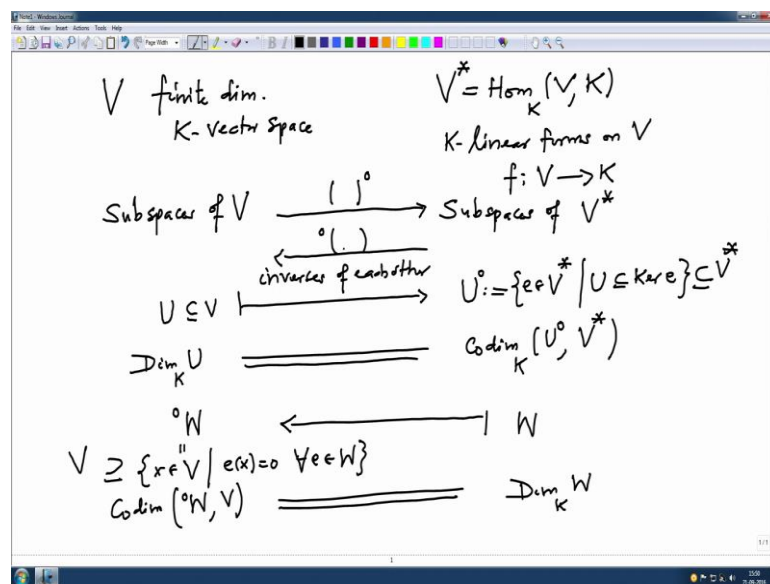 Note1 - Windows Journal
File Edit View Insert Actions Tools Help
Page Width
B I
V finite dim. V* = Hom_K (V, K)
K-vector space
K-linear forms on V
f: V → K
Subspaces of V ( )° → Subspaces of V*
°(.) ←
inverses of each other
U ⊆ V ↦ U° := {e ∈ V* | U ⊆ Ker e} ⊆ V*
Dim_K U = Codim_K (U°, V*)
°W ← W
V ⊇ {x ∈ V | e(x)=0 ∀ e ∈ W}
Codim (°W, V) = Dim_K W
1/1
1
15:50